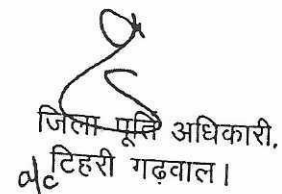 जिला पूर्ति अधिकारी,
टिहरी गढ़वाल।